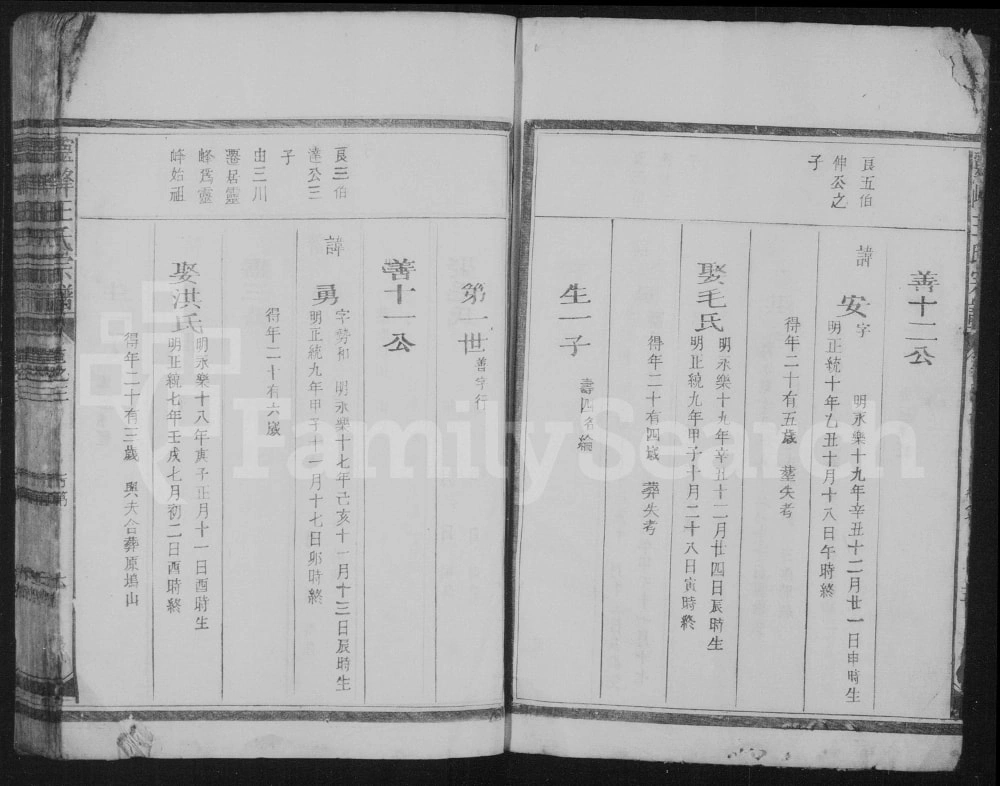 善十二公
良五伯
伸公之
子
諱安字
明永樂十九年辛丑十二月廿一日申時生
明正統十年乙丑十月十八日午時終
得年二十有五歲 塟失考
娶毛氏
明永樂十九年辛丑十二月廿四日辰時生
明正統九年甲子十月二十八日寅時終
得年二十有四歲 葬失考
生一子
壽四名綸
第一世
善字行
善十一公
良三伯
達公三
子
由三川
遷居靈
峰爲靈
峰始祖
諱勇
字勢和 明永樂十七年己亥十一月十三日辰時生
明正統九年甲子十一月十七日卯時終
得年二十有六歲
娶洪氏
明永樂十八年庚子正月十一日酉時生
明正統七年壬戌七月初二日酉時終
得年二十有三歲 與夫合葬原塢山
靈峰王氏宗譜
FamilySearch